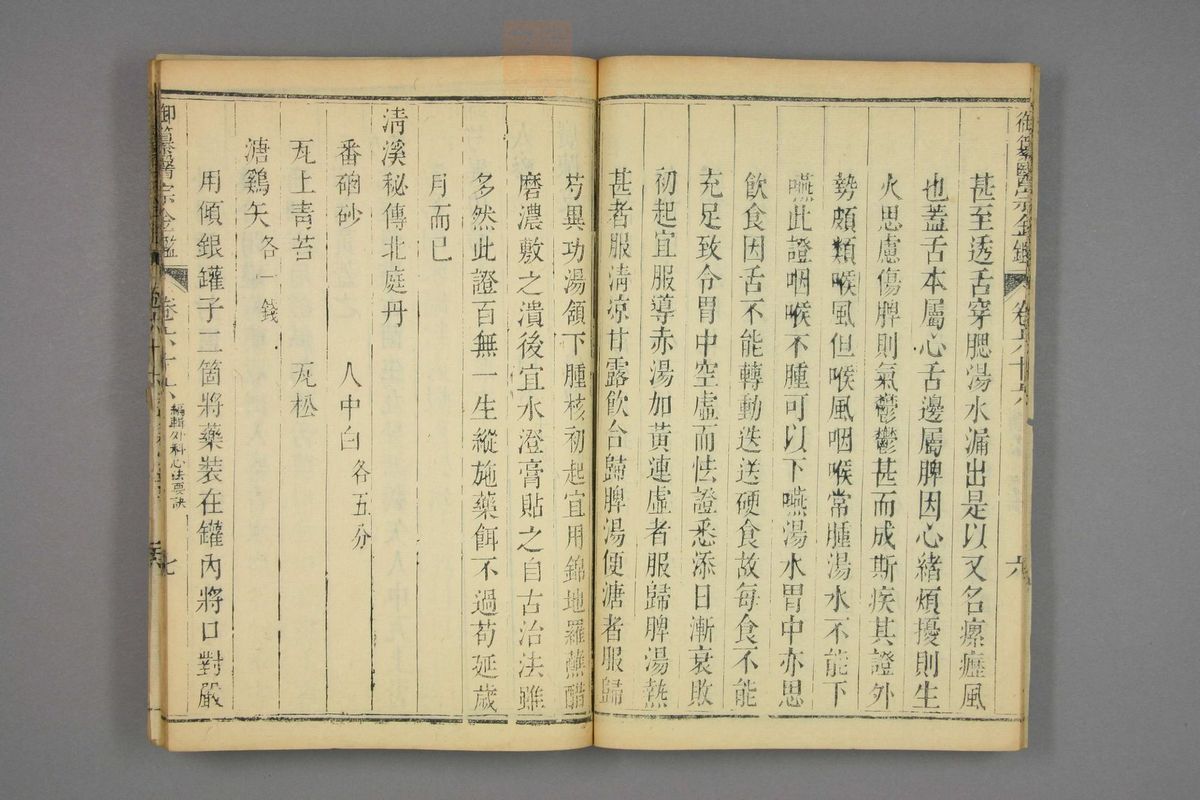 御纂醫宗金鑑 卷六十六 六
甚至透舌穿腮湯水漏出是以又名瘰癧風
也蓋舌本屬心舌邊屬脾因心緒煩擾則生
火思慮傷脾則氣鬱鬱甚而成斯疾其證外
勢頗類喉風但喉風咽喉常腫湯水不能下
嚥此證咽喉不腫可以下嚥湯水胃中亦思
飲食因舌不能轉動迭送硬食故每食不能
充足致令胃中空虛而怯證悉添日漸衰敗
初起宜服導赤湯加黃連虛者服歸脾湯熱
甚者服清涼甘露飲合歸脾湯便溏者服歸
芍異功湯頷下腫核初起宜用錦地羅蘸醋
磨濃敷之潰後宜水澄膏貼之自古治法雖
多然此證百無一生縱施藥餌不過苟延歲
月而已
清溪秘傳北庭丹
番硇砂 人中白各五分
瓦上青苔 瓦松
溏鷄矢各一錢
用傾銀罐子二箇將藥裝在罐內將口對嚴
御纂醫宗金鑑 卷六十六 編輯外科心法要訣 七